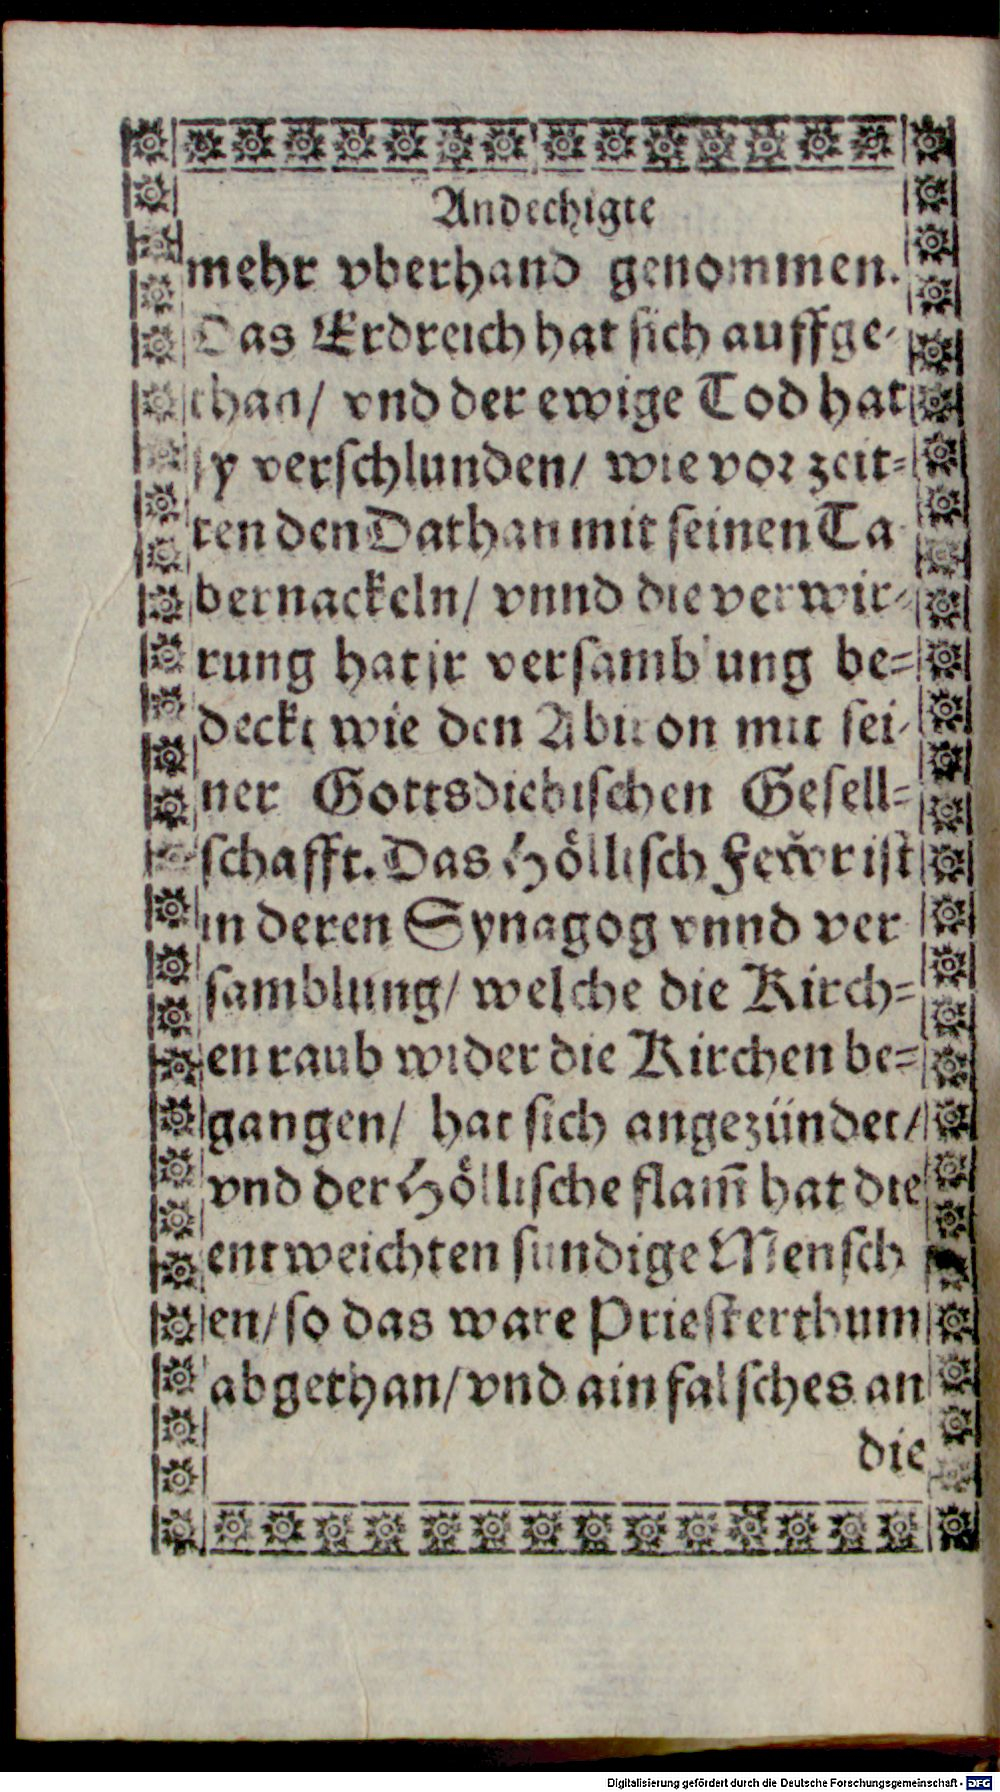 Andechigte
mehr vberhand genommen.
Das Erdreich hat sich auffge-
than/ vnd der ewige Tod hat
sy verschlunden/ wie vor zeit-
ten den Dathan mit seinen Ta
bernackeln/ vnnd die verwir-
rung hat jr versamblung be-
deckt wie den Abiron mit sei-
ner Gottsdiebischen Gesell-
schafft. Das Höllisch Fewr ist
in deren Synagog vnnd ver
samblung/ welche die Kirch-
en raub wider die Kirchen be-
gangen/ hat sich angezündet/
vnd der Höllische flam̄ hat die
entweichten sundige Mensch
en/ so das ware Priesterthum
abgethan/ vnd ain falsches an
die
Digitalisierung gefördert durch die Deutsche Forschungsgemeinschaft - DFG